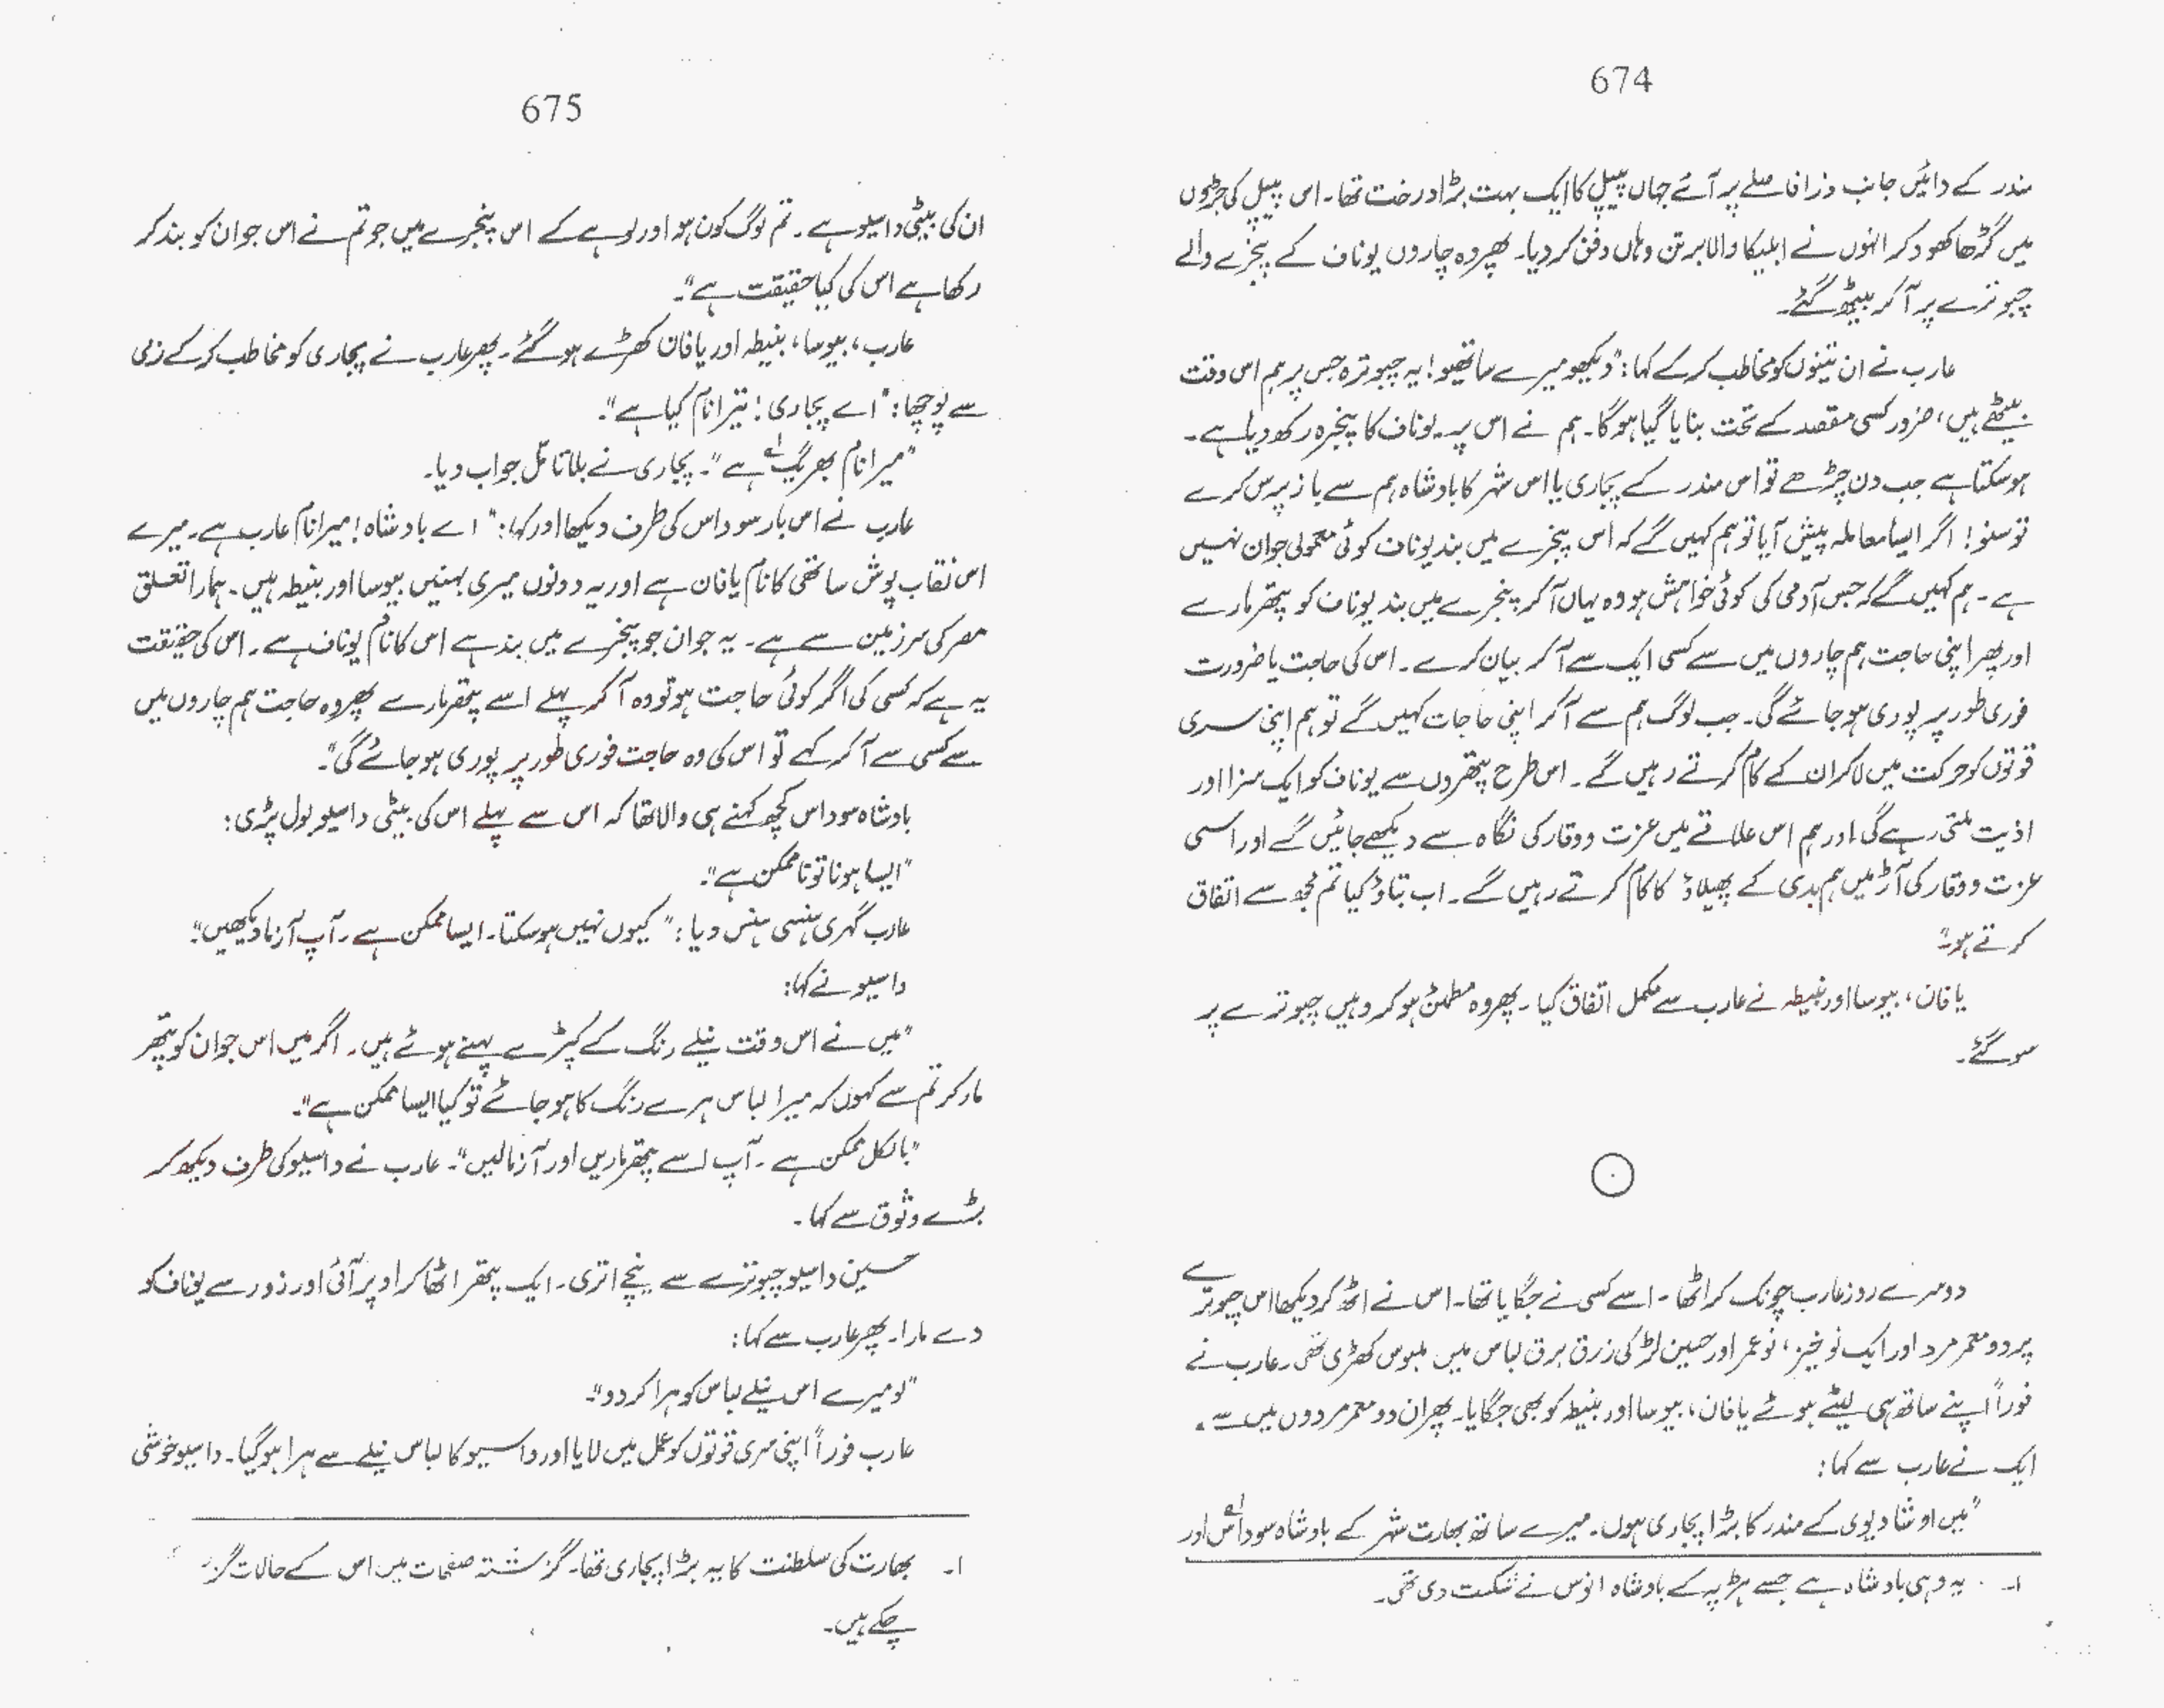 674
مندر کے دائیں جانب ذرا فاصلے پر آئے جہاں پیپل کا ایک بہت بڑا درخت تھا۔ اس پیپل کی جڑوں
میں گڑھا کھود کر انہوں نے ابلیکا والا برتن وہاں دفن کر دیا۔ پھر وہ چاروں یوناف کے پنجرے والے
چبوترے پر آ کر بیٹھ گئے۔
عارب نے ان تینوں کو مخاطب کر کے کہا: "دیکھو میرے ساتھیو! یہ چبوترہ جس پر ہم اس وقت
بیٹھے ہیں، ضرور کسی مقصد کے تحت بنایا گیا ہوگا۔ ہم نے اس پر یوناف کا پنجرہ رکھ دیا ہے۔
ہو سکتا ہے جب دن چڑھے تو اس مندر کے پجاری یا اس شہر کا بادشاہ ہم سے باز پرس کرے
تو سنو! اگر ایسا معاملہ پیش آیا تو ہم کہیں گے کہ اس پنجرے میں بند یوناف کوئی معمولی جوان نہیں
ہے۔ ہم کہیں گے کہ جس آدمی کی کوئی خواہش ہو وہ یہاں آ کر پنجرے میں بند یوناف کو پتھر مارے
اور پھر اپنی حاجت ہم چاروں میں سے کسی ایک سے آ کر بیان کرے۔ اس کی حاجت یا ضرورت
فوری طور پر پوری ہو جائے گی۔ جب لوگ ہم سے آ کر اپنی حاجات کہیں گے تو ہم اپنی سری
قوتوں کو حرکت میں لا کر ان کے کام کرتے رہیں گے۔ اس طرح پتھروں سے یوناف کو ایک سزا اور
اذیت ملتی رہے گی اور ہم اس علاقے میں عزت و وقار کی نگاہ سے دیکھے جائیں گے اور اسی
عزت و وقار کی آڑ میں ہم بدی کے پھیلاؤ کا کام کرتے رہیں گے۔ اب بتاؤ کیا تم مجھ سے اتفاق
کرتے ہو۔"
یافان، بیوسا اور بنیطہ نے عارب سے مکمل اتفاق کیا۔ پھر وہ مطمئن ہو کر وہیں چبوترے پر
سو گئے۔
دوسرے روز عارب چونک کر اٹھا۔ اسے کسی نے جگایا تھا۔ اس نے اٹھ کر دیکھا اس چبوترے
پر دو معمر مرد اور ایک نوخیز، نوعمر اور حسین لڑکی زرق برق لباس میں ملبوس کھڑی تھی۔ عارب نے
فوراً اپنے ساتھ ہی لیٹے ہوئے یافان، بیوسا اور بنیطہ کو بھی جگایا۔ پھر ان دو معمر مردوں میں سے
ایک نے عارب سے کہا:
"میں اوشا دیوی کے مندر کا بڑا پجاری ہوں۔ میرے ساتھ بھارت شہر کے بادشاہ سوداس؂۱ اور
۱۔ یہ وہی بادشاہ ہے جسے ہڑپہ کے بادشاہ انوس نے شکست دی تھی۔
675
ان کی بیٹی داسیو ہے۔ تم لوگ کون ہو اور لوہے کے اس پنجرے میں جو تم نے اس جوان کو بند کر
رکھا ہے اس کی کیا حقیقت ہے"۔
عارب، بیوسا، بنیطہ اور یافان کھڑے ہو گئے۔ پھر عارب نے پجاری کو مخاطب کر کے نرمی
سے پوچھا: "اے پجاری! تیرا نام کیا ہے"۔
"میرا نام بھریگ؂۱ ہے"۔ پجاری نے بلا تامل جواب دیا۔
عارب نے اس بار سوداس کی طرف دیکھا اور کہا: "اے بادشاہ! میرا نام عارب ہے۔ میرے
اس نقاب پوش ساتھی کا نام یافان ہے اور یہ دونوں میری بہنیں بیوسا اور بنیطہ ہیں۔ ہمارا تعلق
مصر کی سرزمین سے ہے۔ یہ جوان جو پنجرے میں بند ہے اس کا نام یوناف ہے۔ اس کی حقیقت
یہ ہے کہ کسی کی اگر کوئی حاجت ہو تو وہ آ کر پہلے اسے پتھر مارے پھر وہ حاجت ہم چاروں میں
سے کسی سے آ کر کہے تو اس کی وہ حاجت فوری طور پر پوری ہو جائے گی"۔
بادشاہ سوداس کچھ کہنے ہی والا تھا کہ اس سے پہلے اس کی بیٹی داسیو بول پڑی:
"ایسا ہونا تو ناممکن ہے"۔
عارب گہری ہنسی ہنس دیا: "کیوں نہیں ہو سکتا۔ ایسا ممکن ہے۔ آپ آزما دیکھیں"۔
داسیو نے کہا:
"میں نے اس وقت نیلے رنگ کے کپڑے پہنے ہوئے ہیں۔ اگر میں اس جوان کو پتھر
مار کر تم سے کہوں کہ میرا لباس ہرے رنگ کا ہو جائے تو کیا ایسا ممکن ہے"۔
"بالکل ممکن ہے۔ آپ اسے پتھر ماریں اور آزما لیں"۔ عارب نے داسیو کی طرف دیکھ کر
بڑے وثوق سے کہا۔
حسین داسیو چبوترے سے نیچے اتری۔ ایک پتھر اٹھا کر اوپر آئی اور زور سے یوناف کو
دے مارا۔ پھر عارب سے کہا:
"لو میرے اس نیلے لباس کو ہرا کر دو"۔
عارب فوراً اپنی سری قوتوں کو عمل میں لایا اور داسیو کا لباس نیلے سے ہرا ہو گیا۔ داسیو خوشی
۱۔ بھارت کی سلطنت کا یہ بڑا پجاری تھا۔ گزشتہ صفحات میں اس کے حالات گزر
چکے ہیں۔